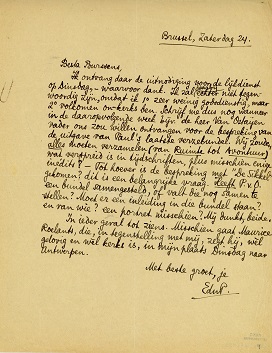 Brussel, Zaterdag 24.
Beste Burssens,
Ik ontvang daar de uitnodiging voor de lijkdienst
op Dinsdag, – waarvoor dank. Ik zal echter niet tegen-
woordig zijn, omdat ik 1º zeer weinig godsdienstig, maar
2º volkomen on-kerks ben. Schrijf me dus nog wanneer
in de daaropvolgende week bij de heer Van Ostayen
vader ons zou willen ontvangen voor de bespreking van
de uitgave van Paul's laatste verzenbundel. Wij zouden
alles moeten verzamelen (van Ruimte tot Avontuur)
wat verspreid is in tijdschriften, plus misschien enige
inedita? – Tot hoever is de bespreking met "De Sikkel"
gekomen? dit is een belangrijke vraag. Heeft P. v. O.
een bundel samengesteld, of valt die nog samen te
stellen? Moet er een inleiding in die bundel staan?
en van wie? een portret misschien? Mij dunkt, beide.
In ieder geval tot ziens. Misschien gaat Maurice
Roelants, die, in tegenstelling met mij, zegt hij, wèl
gelovig en wèl kerks is, in mijn plaats Dinsdag naar
Antwerpen.
Met beste groet, je
EduP.